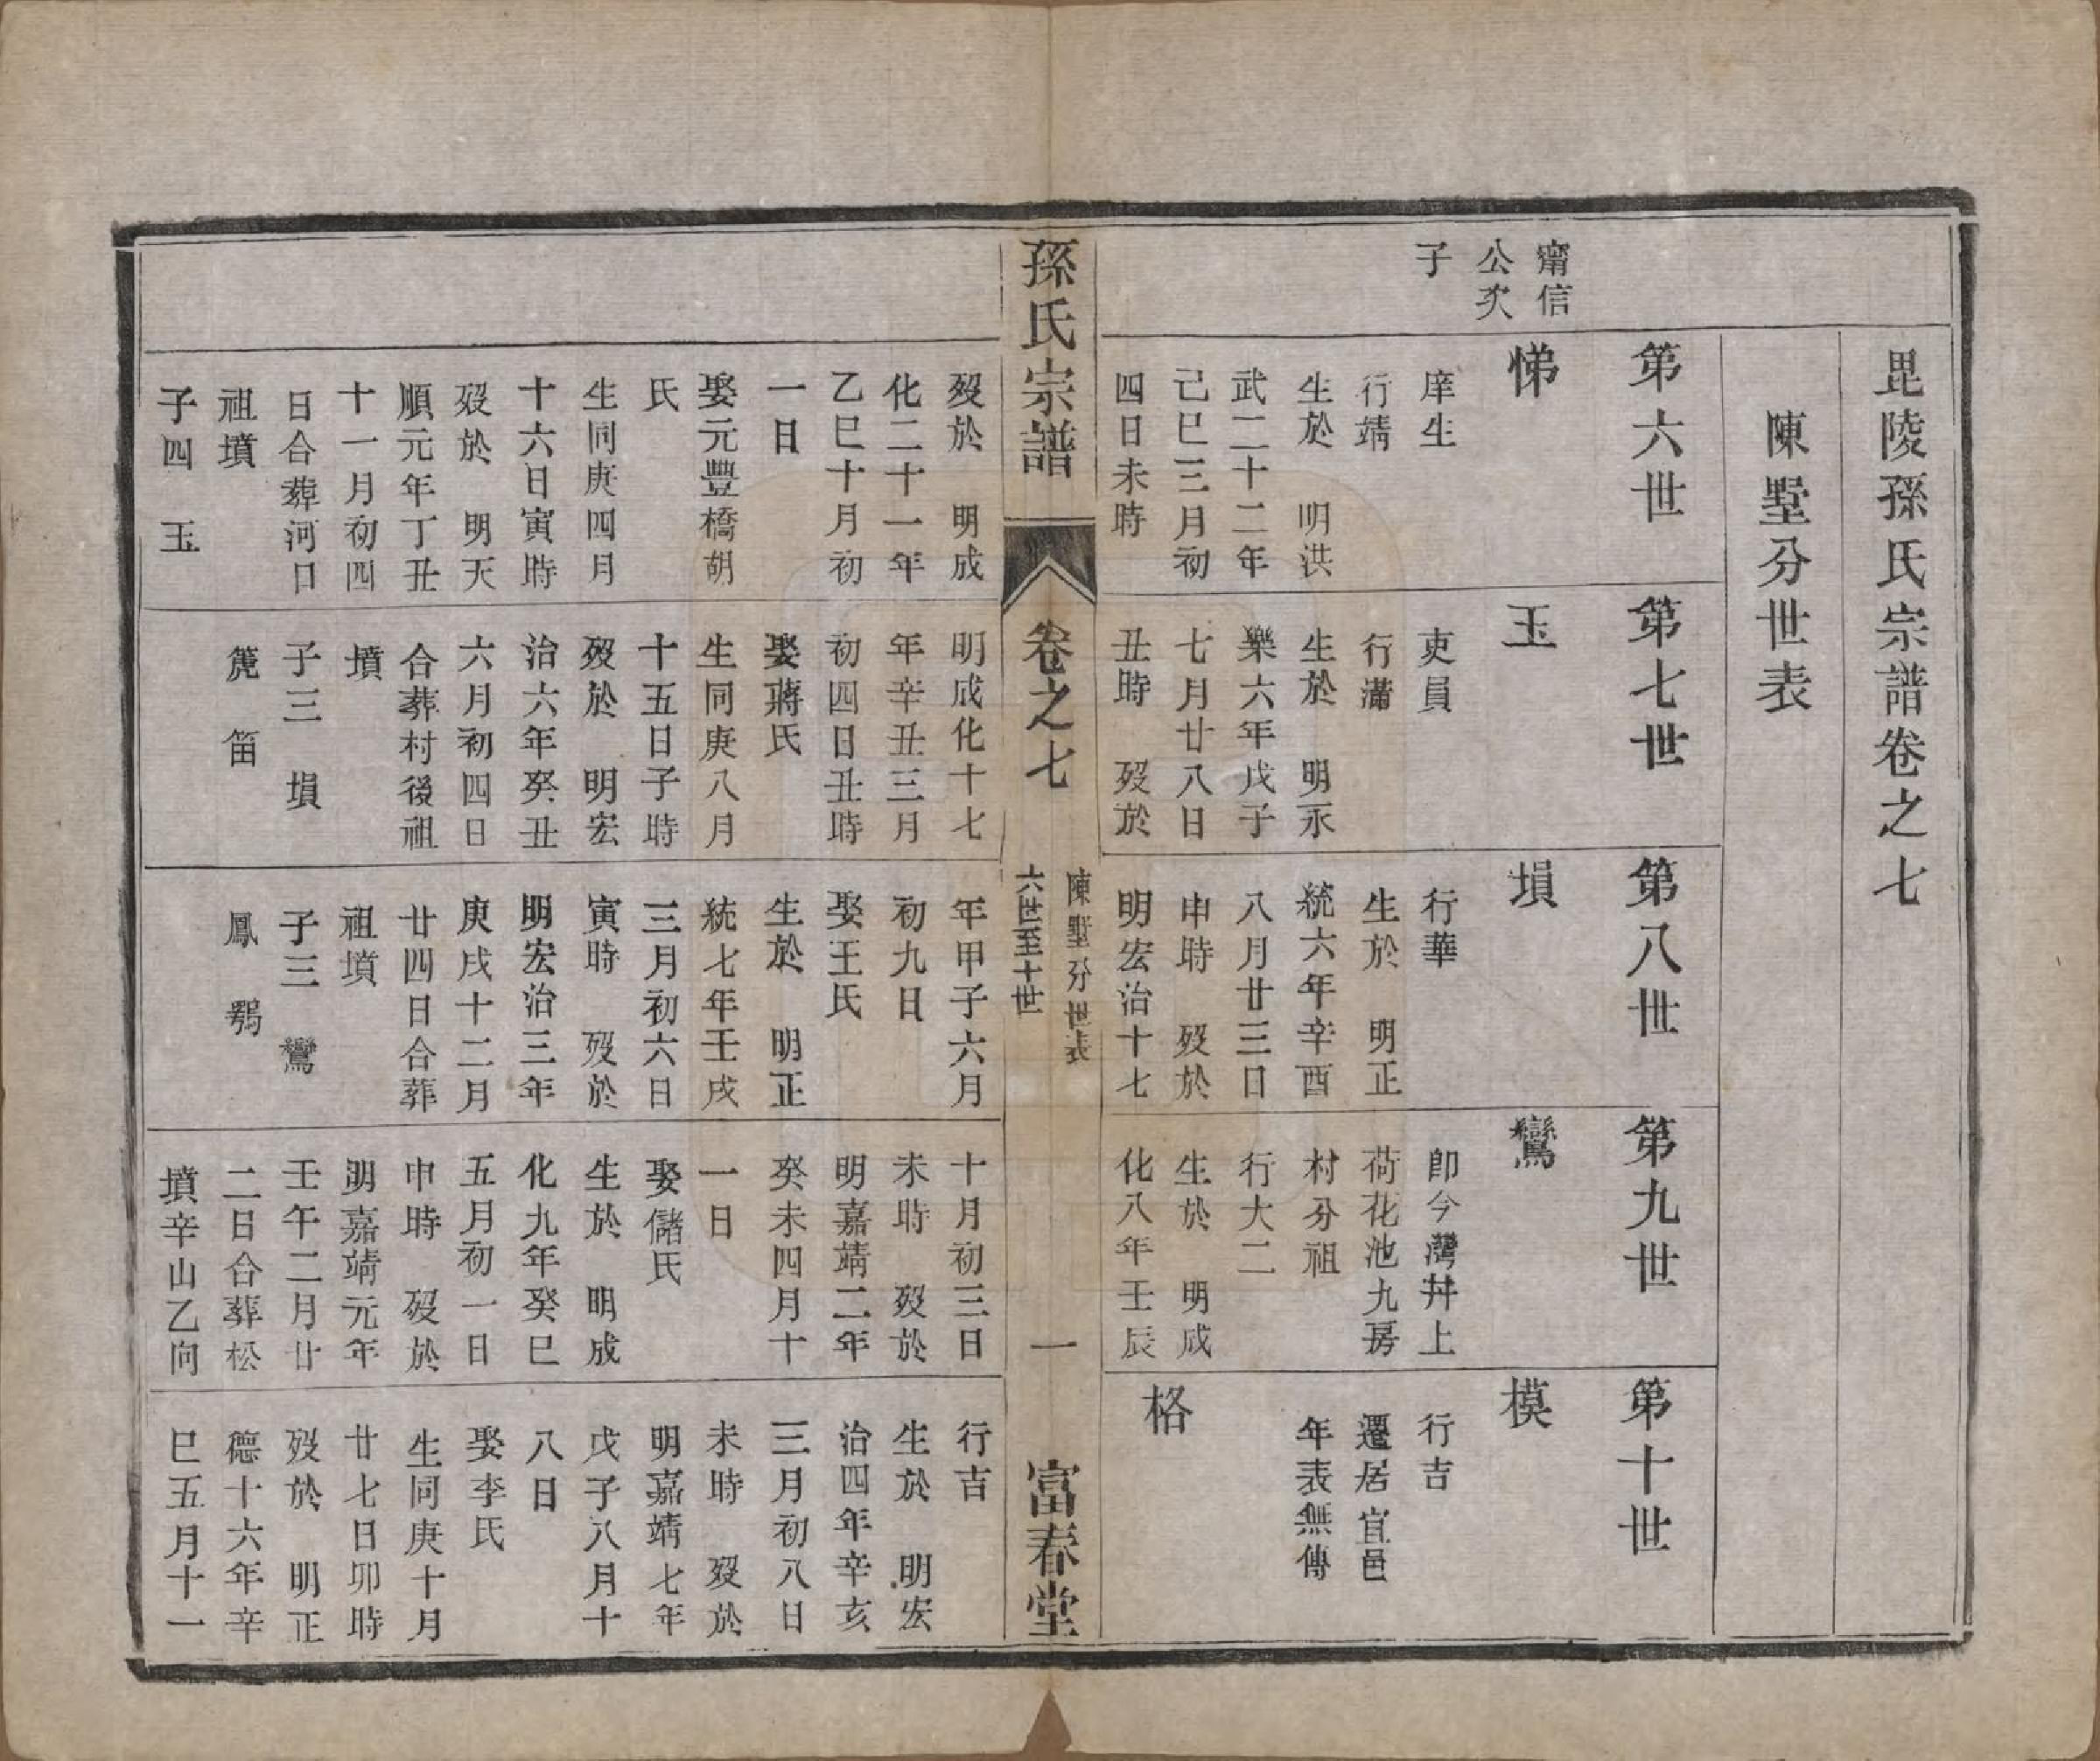 毘陵孫氏宗譜卷之七
陳墅分世表
甯信
公次
子
第六世
悌
庠生
行靖
生於　明洪
武二十二年
己巳三月初
四日未時
第七世
玉
吏員
行瀟
生於　明永
樂六年戊子
七月廿八日
丑時　歿於
第八世
塤
行華
生於　明正
統六年辛酉
八月廿三日
申時　歿於
明宏治十七
第九世
鸞
卽今灣荓上
荷花池九房
村分祖
行大二
生於　明成
化八年壬辰
第十世
模
行吉
遷居宜邑
年表無傳
格
孫氏宗譜
卷之七
陳墅分世表
六世至十世
一
富春堂
歿於　明成
化二十一年
乙巳十月初
一日
娶元豐橋胡
氏
生同庚四月
十六日寅時
歿於　明天
順元年丁丑
十一月初四
日合葬河口
祖墳
子四　玉
明成化十七
年辛丑三月
初四日丑時
娶蔣氏
生同庚八月
十五日子時
歿於　明宏
治六年癸丑
六月初四日
合葬村後祖
墳
子三　塤
箎　笛
年甲子六月
初九日
娶王氏
生於　明正
統七年壬戌
三月初六日
寅時　歿於
明宏治三年
庚戌十二月
廿四日合葬
祖墳
子三　鸞
鳳　鶚
十月初三日
未時　歿於
明嘉靖二年
癸未四月十
一日
娶儲氏
生於　明成
化九年癸巳
五月初一日
申時　歿於
明嘉靖元年
壬午二月廿
二日合葬松
墳辛山乙向
行吉
生於　明宏
治四年辛亥
三月初八日
未時　歿於
明嘉靖七年
戊子八月十
八日
娶李氏
生同庚十月
廿七日卯時
歿於　明正
德十六年辛
巳五月十一